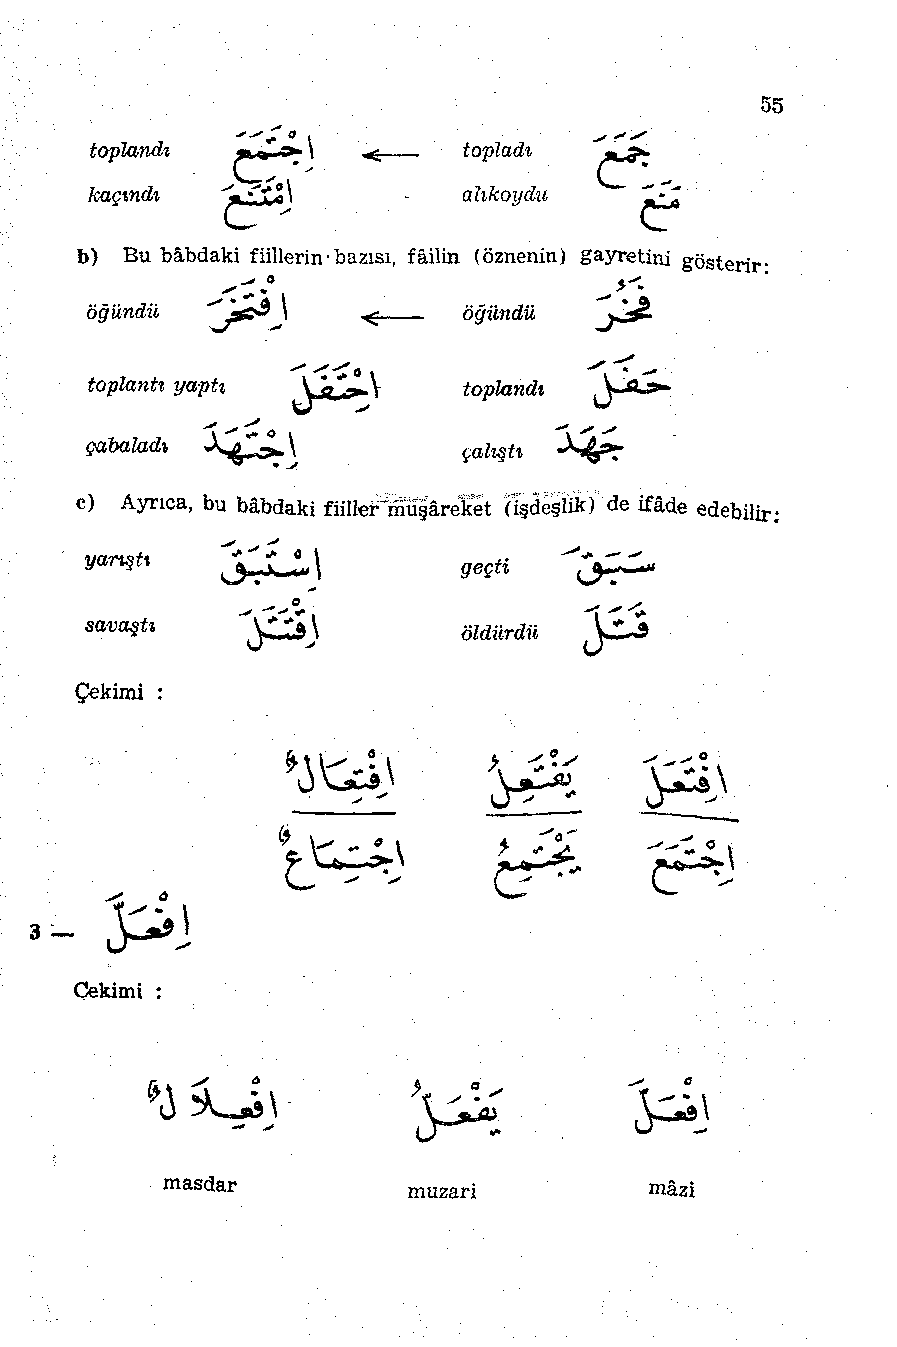 55
toplandı اِجْتَمَعَ ← topladı جَمَعَ
kaçındı اِمْتَنَعَ alıkoydu مَنَعَ
b) Bu bâbdaki fiillerin bazısı, fâilin (öznenin) gayretini gösterir:
öğündü اِفْتَخَرَ ← öğündü فَخُرَ
toplantı yaptı اِحْتَفَلَ toplandı حَفَلَ
çabaladı اِجْتَهَدَ çalıştı جَهَدَ
c) Ayrıca, bu bâbdaki fiiller müşâreket (işdeşlik) de ifâde edebilir:
yarıştı اِسْتَبَقَ geçti سَبَقَ
savaştı اِقْتَتَلَ öldürdü قَتَلَ
Çekimi :
اِفْتِعَالٌ يَفْتَعِلُ اِفْتَعَلَ
اِجْتِمَاعٌ يَجْتَمِعُ اِجْتَمَعَ
3 — اِفْعَلَّ
Çekimi :
اِفْعِلَالٌ يَفْعَلُّ اِفْعَلَّ
masdar muzari mâzi